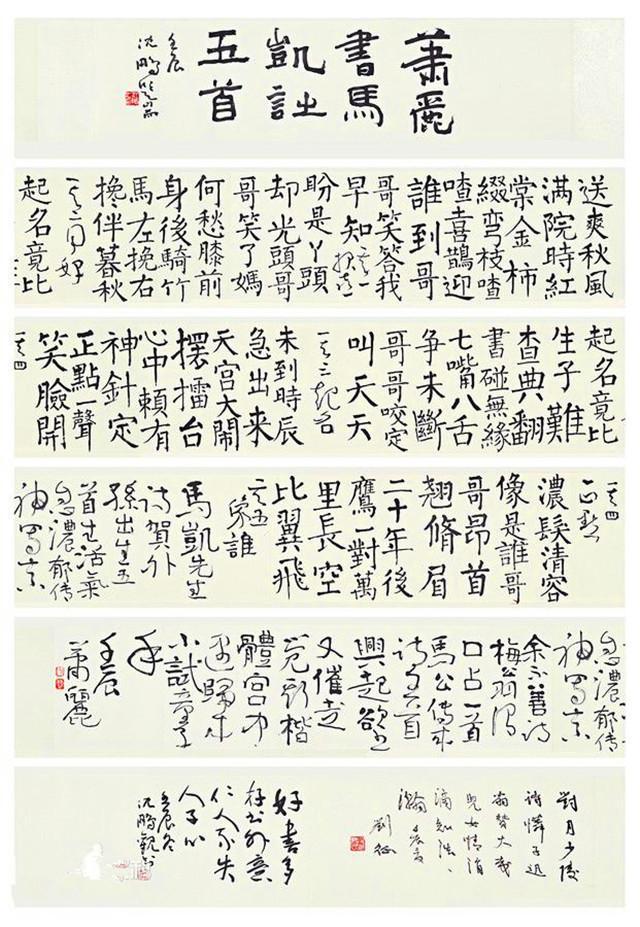 萧麗
書馬
凱詩
五首
壬辰
沈鵬
送爽秋風
满院時紅
棠金柿
綴彎枝喳
喳喜鵲迎
誰到哥
哥笑答我
早知其一报喜
盼是丫頭
却光頭哥
哥笑了媽
何愁膝前
身後騎竹
馬左挽右
攙伴暮秋
其二同好
起名竟比
起名竟比
生子難
查典翻
書碰無緣
七嘴八舌
争未斷
哥哥咬定
叫天天
其三起名
未到時辰
急出来
天宫大鬧
擺擂台
心中賴有
神針定
正點一聲
笑臉開
其四
其四
正點
濃髮清容
像是誰哥
哥昂首
翹脩眉
二十年後
鷹一對萬
里長空
比翼飛
其五
象誰
馬凱先生
詩賀外
孫出生五
首生活氣
息濃郁传
神
息濃郁传
神
余不善詩
梅翁
口占一首
馬公傳来
詩五首
興起欲
又催
楷
體宫中
歸来
小試
壬辰
萧麗
對月少陵
詩憐子
兒女情
劉征
好書多
存書外意
仁人不失
人子心
壬辰冬
沈鵬觀